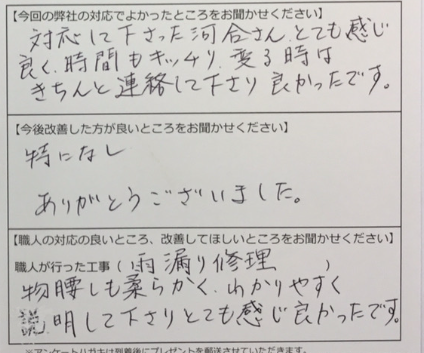 【今回の弊社の対応でよかったところをお聞かせください】
対応して下さった河合さん、とても感じ
良く、時間もキッチリ、変る時は
きちんと連絡して下さり良かったです。
【今後改善した方が良いところをお聞かせください】
特になし
ありがとうございました。
【職人の対応の良いところ、改善してほしいところをお聞かせください】
職人が行った工事（雨漏り修理）
物腰しも柔らかく、わかりやすく
説明して下さりとても感じ良かったです。
※アンケートハガキは到着後にプレゼントを郵送させていただきます。